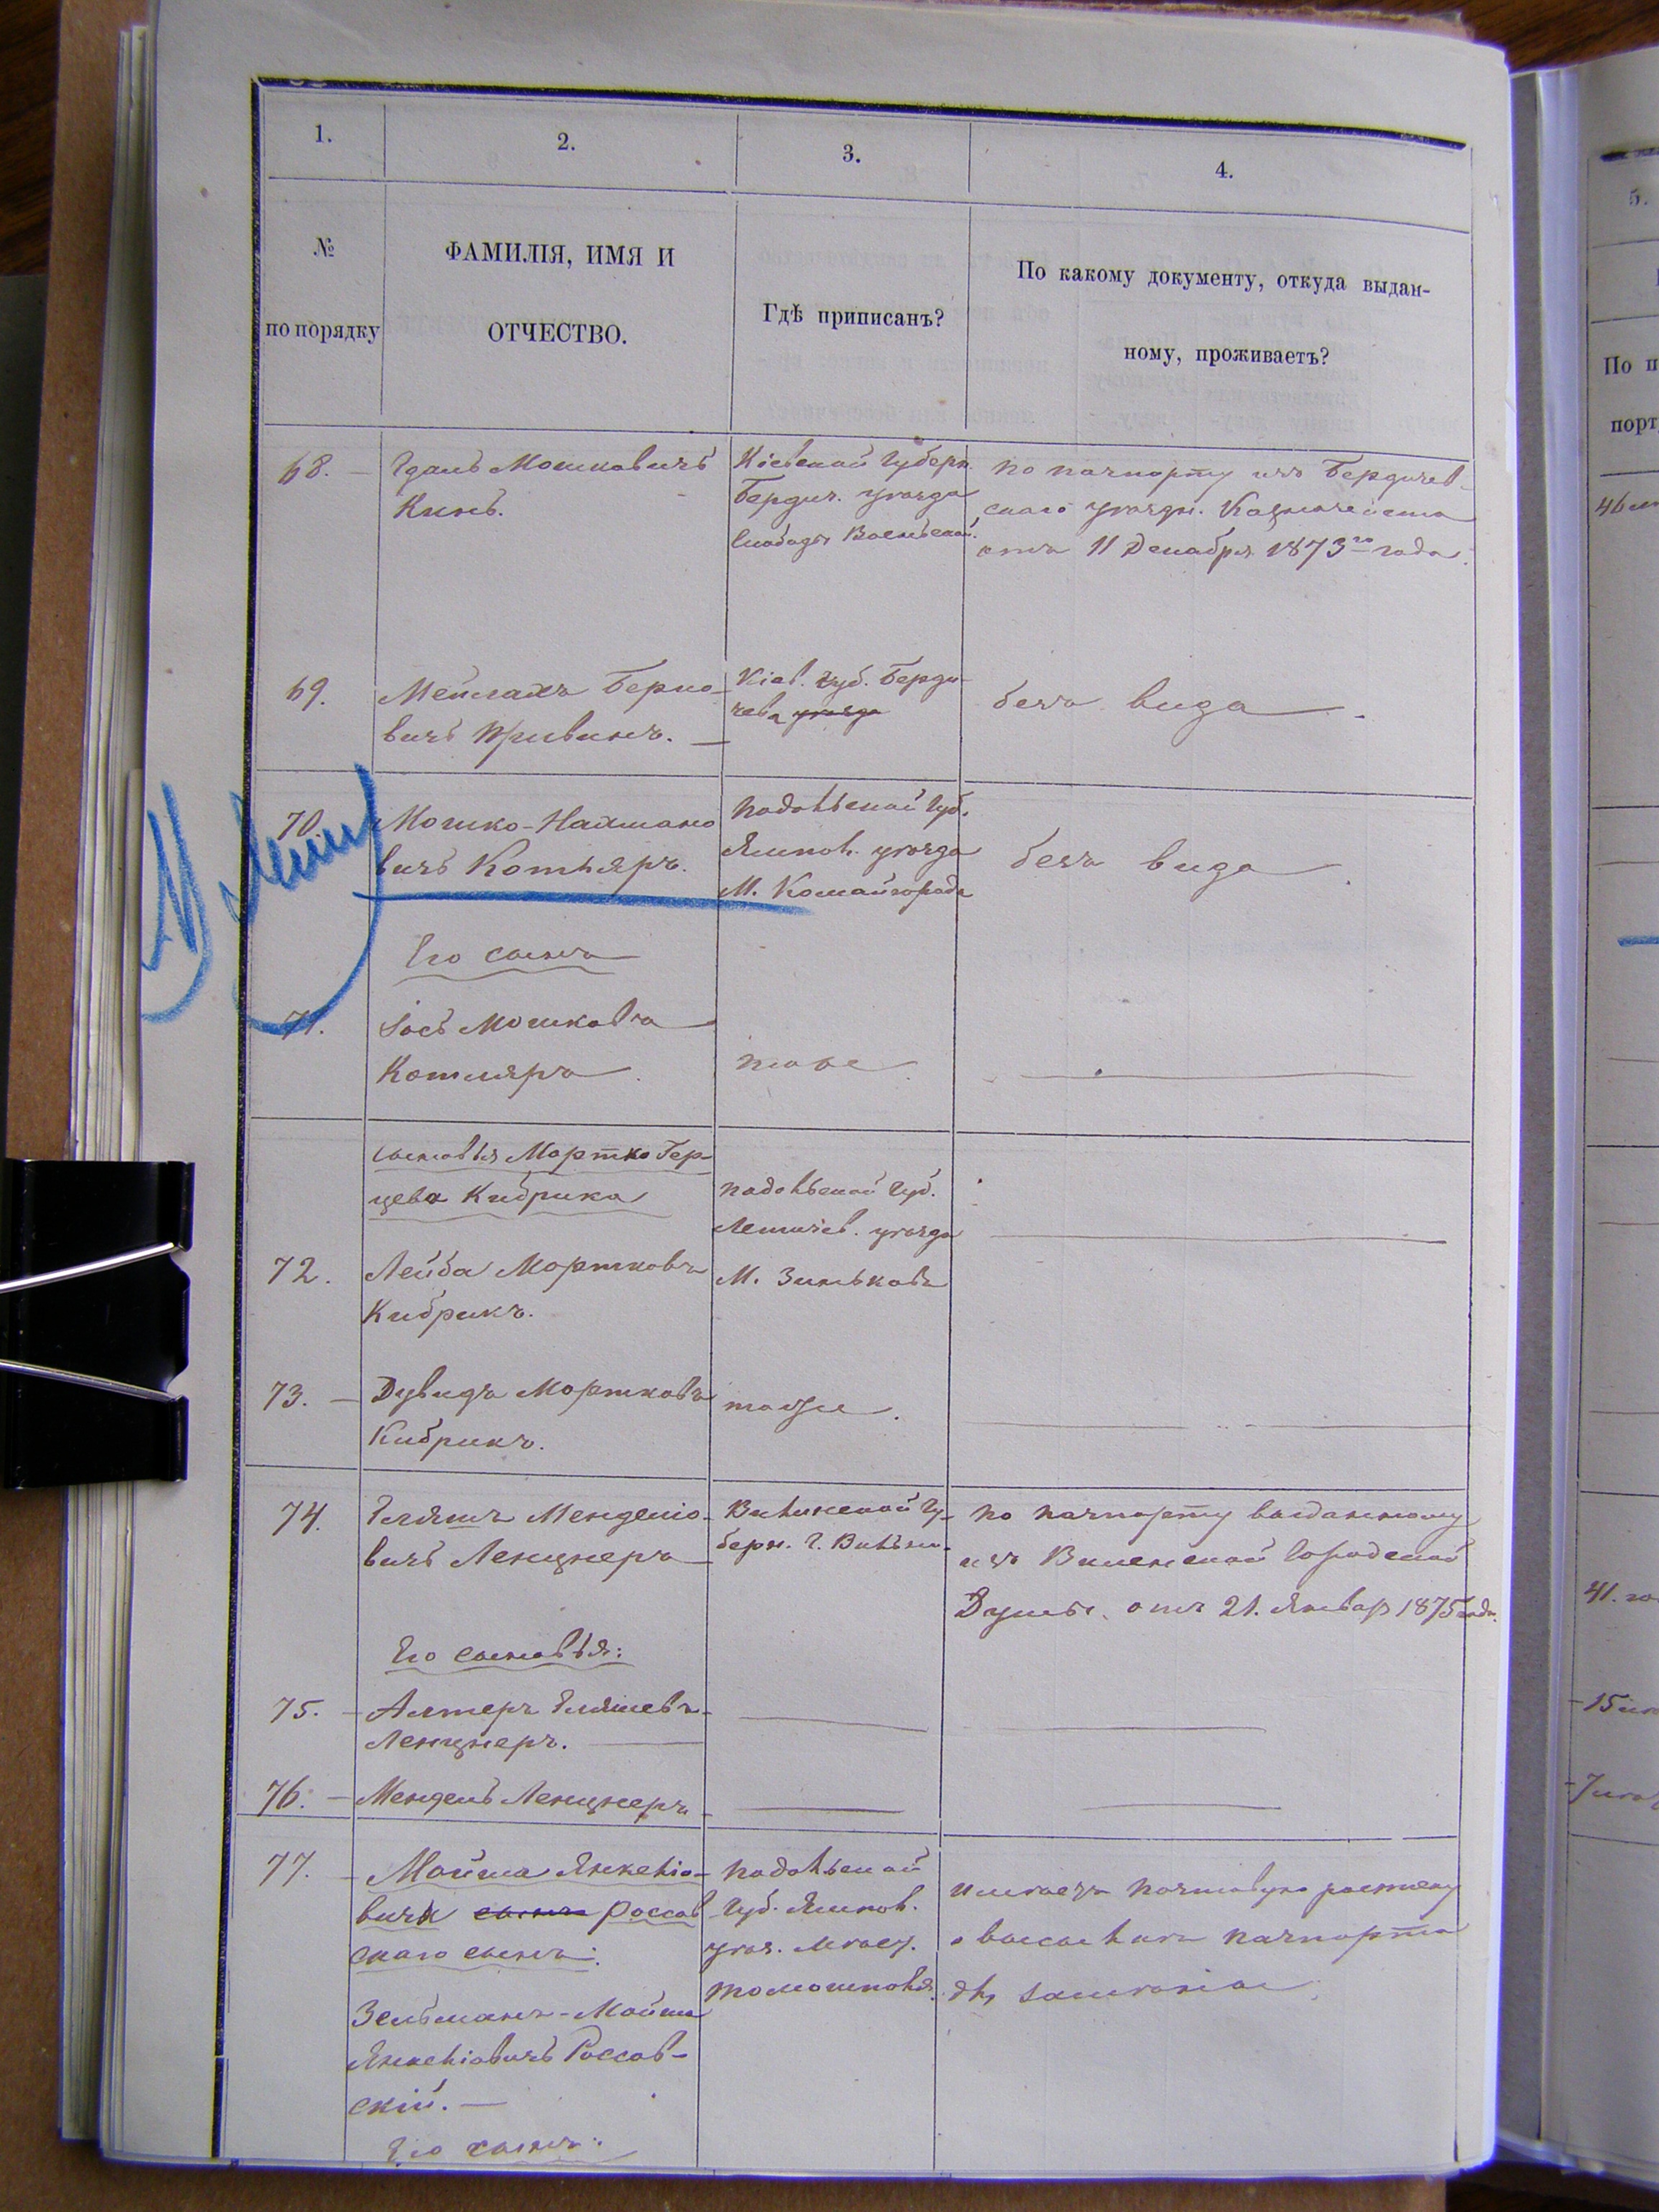 1.
2.
3.
4.
№
по порядку
ФАМИЛІЯ, ИМЯ И
ОТЧЕСТВО.
Гдѣ приписанъ?
По какому документу, откуда выдан-
ному, проживаетъ?
68.
Мошковичъ
Кинъ.
Кіевской Губерн.
Бердич. уѣзда
Слободы
По паспорту изъ Бердичев-
скаго уѣздн. Казначейства
отъ 11 Декабря 1873го года.
69.
Мейлахъ Берко-
вичъ Кривинъ.
Кіев. губ. Берди-
чева уѣзда
безъ вида
70.
Мошко-Нахмано
вичъ Котляръ.
Подольской Губ.
Ямпол. уѣзда
М. Комайгорода
безъ вида
Его сынъ
71.
Іось Мошковъ
Котляръ
тоже
сыновья Мортко Гер-
цева Кибрика
Подольской Губ.
Летичев. уѣзда
72.
Лейба Мортковъ
Кибрикъ.
М. Зиньковъ
73.
Дувидъ Мортковъ
Кибрикъ.
тоже.
74.
Еляшъ Менделіо-
вичъ Ленцнеръ
Виленской Гу-
берн. Г. Вильны
По паспорту выданному
изъ Виленской Городской
Думы. отъ 21. Январ 1875 года.
Его сыновья:
75.
Алтеръ Еляшевъ
Ленцнеръ.
76.
Мендель Ленцнеръ
77.
Мойша Янкеліо-
вичъ сынъ Россов
скаго сынъ:
Подольской
Губ. Ямпол.
уѣз. Мѣст.
Томошполя.
имѣетъ почтовую росписку
о высылкѣ паспорта
Зельманъ-Мойша
Янкеліовичъ Россов-
скій.
Его сынъ:
5.
По п
порт
41. го
15
7